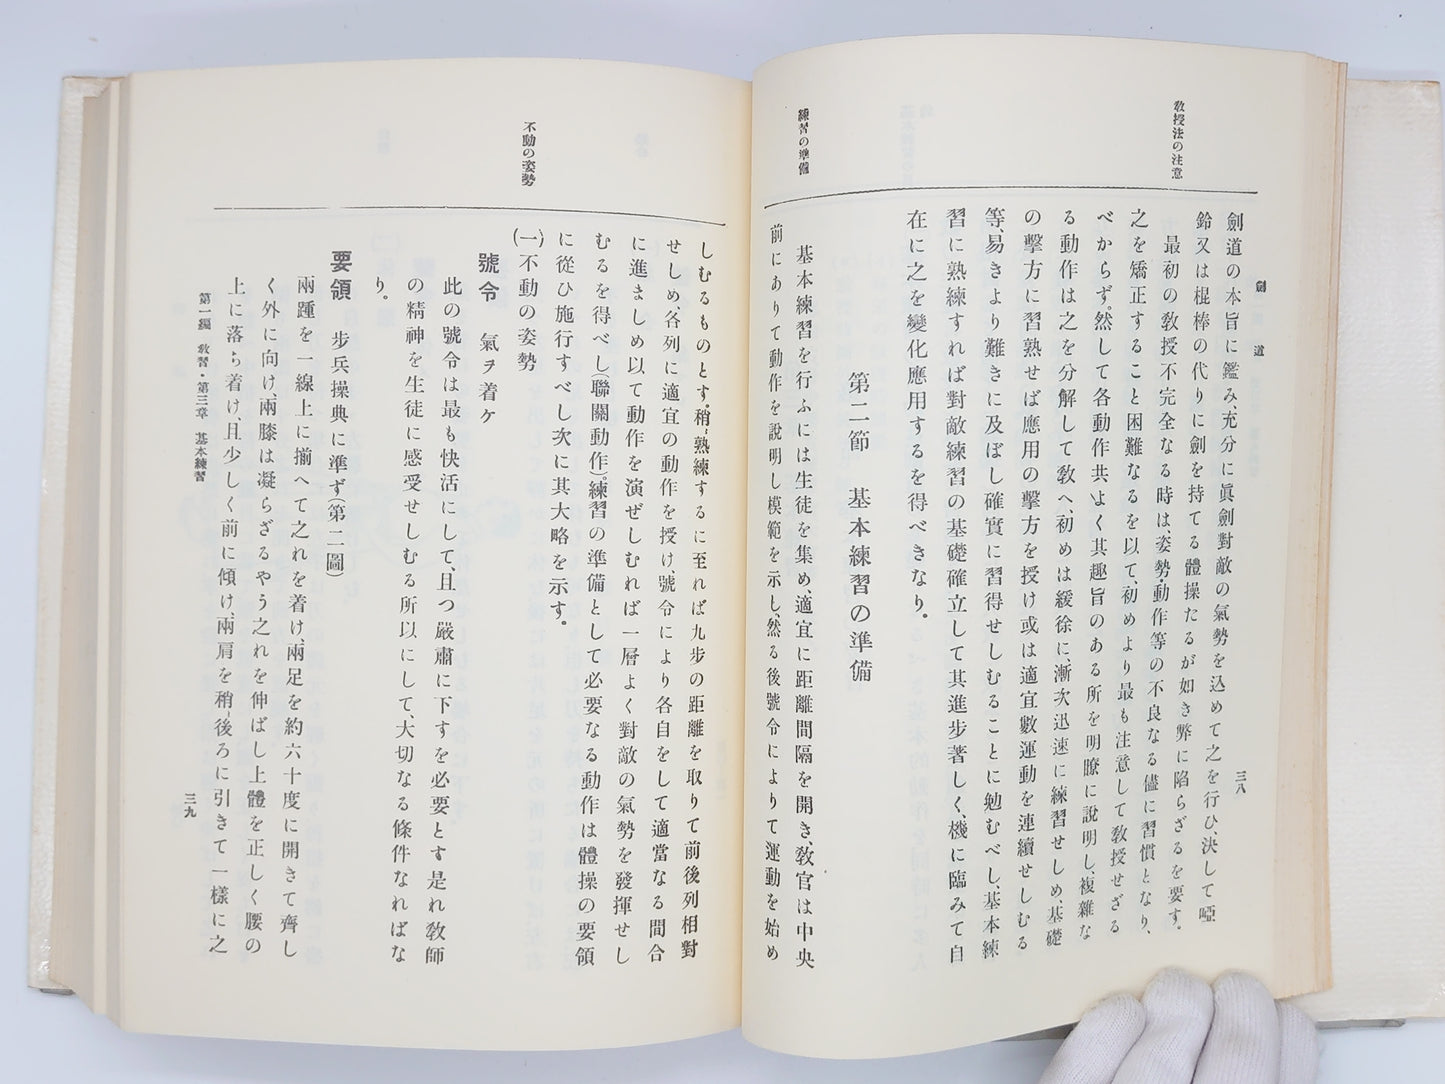 教授法の注意
練習の準備
劍道
三八
劍道の本旨に鑑み、充分に眞劍對敵の氣勢を込めて之を行ひ、決して啞
鈴又は棍棒の代りに劍を持てる體操たるが如き弊に陷らざるを要す。
最初の敎授不完全なる時は、姿勢・動作等の不良なる儘に習慣となり、
之を矯正すること困難なるを以て、初めより最も注意して敎授せざる
べからず、然して各動作共によく其趣旨のある所を明瞭に說明し、複雜な
る動作は之を分解して敎へ、初めは緩徐に、漸次迅速に練習せしめ、基礎
の擊方に習熟せば應用の擊方を授け或は適宜數運動を連續せしむる
等、易きより難きに及ぼし確實に習得せしむることに勉むべし、基本練
習に熟練すれば對敵練習の基礎確立して其進步著しく、機に臨みて自
在に之を變化應用するを得べきなり。
第二節 基本練習の準備
基本練習を行ふには生徒を集め、適宜に距離間隔を開き、敎官は中央
前にありて動作を說明し模範を示し、然る後號令によりて運動を始め
不動の姿勢
しむるものとす。稍〻熟練するに至れば九步の距離を取りて前後列相對
せしめ、各列に適宜の動作を授け、號令により各自をして適當なる間合
に進ましめ以て動作を演ぜしむれば一層よく對敵の氣勢を發揮せし
むるを得べし(聯關動作)。練習の準備として必要なる動作は體操の要領
に從ひ施行すべし次に其大略を示す。
(一)不動の姿勢
號令 氣ヲ着ケ
此の號令は最も快活にして、且つ嚴肅に下すを必要とす是れ敎師
の精神を生徒に感受せしむる所以にして、大切なる條件なればな
り。
要領 步兵操典に準ず(第二圖)
兩踵を一線上に揃へて之れを着け、兩足を約六十度に開きて齊し
く外に向け、兩膝は凝らざるやう之れを伸ばし上體を正しく腰の
上に落ち着け、且少しく前に傾け、兩肩を稍〻後ろに引きて一樣に之
第一編 敎習・第三章 基本練習
三九